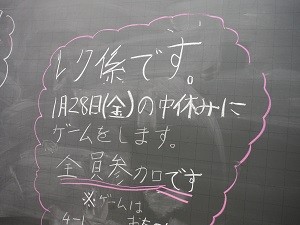 レク係です。
1月28日(金)の中休みに
ゲームをします。
全員参加です
※ゲームは